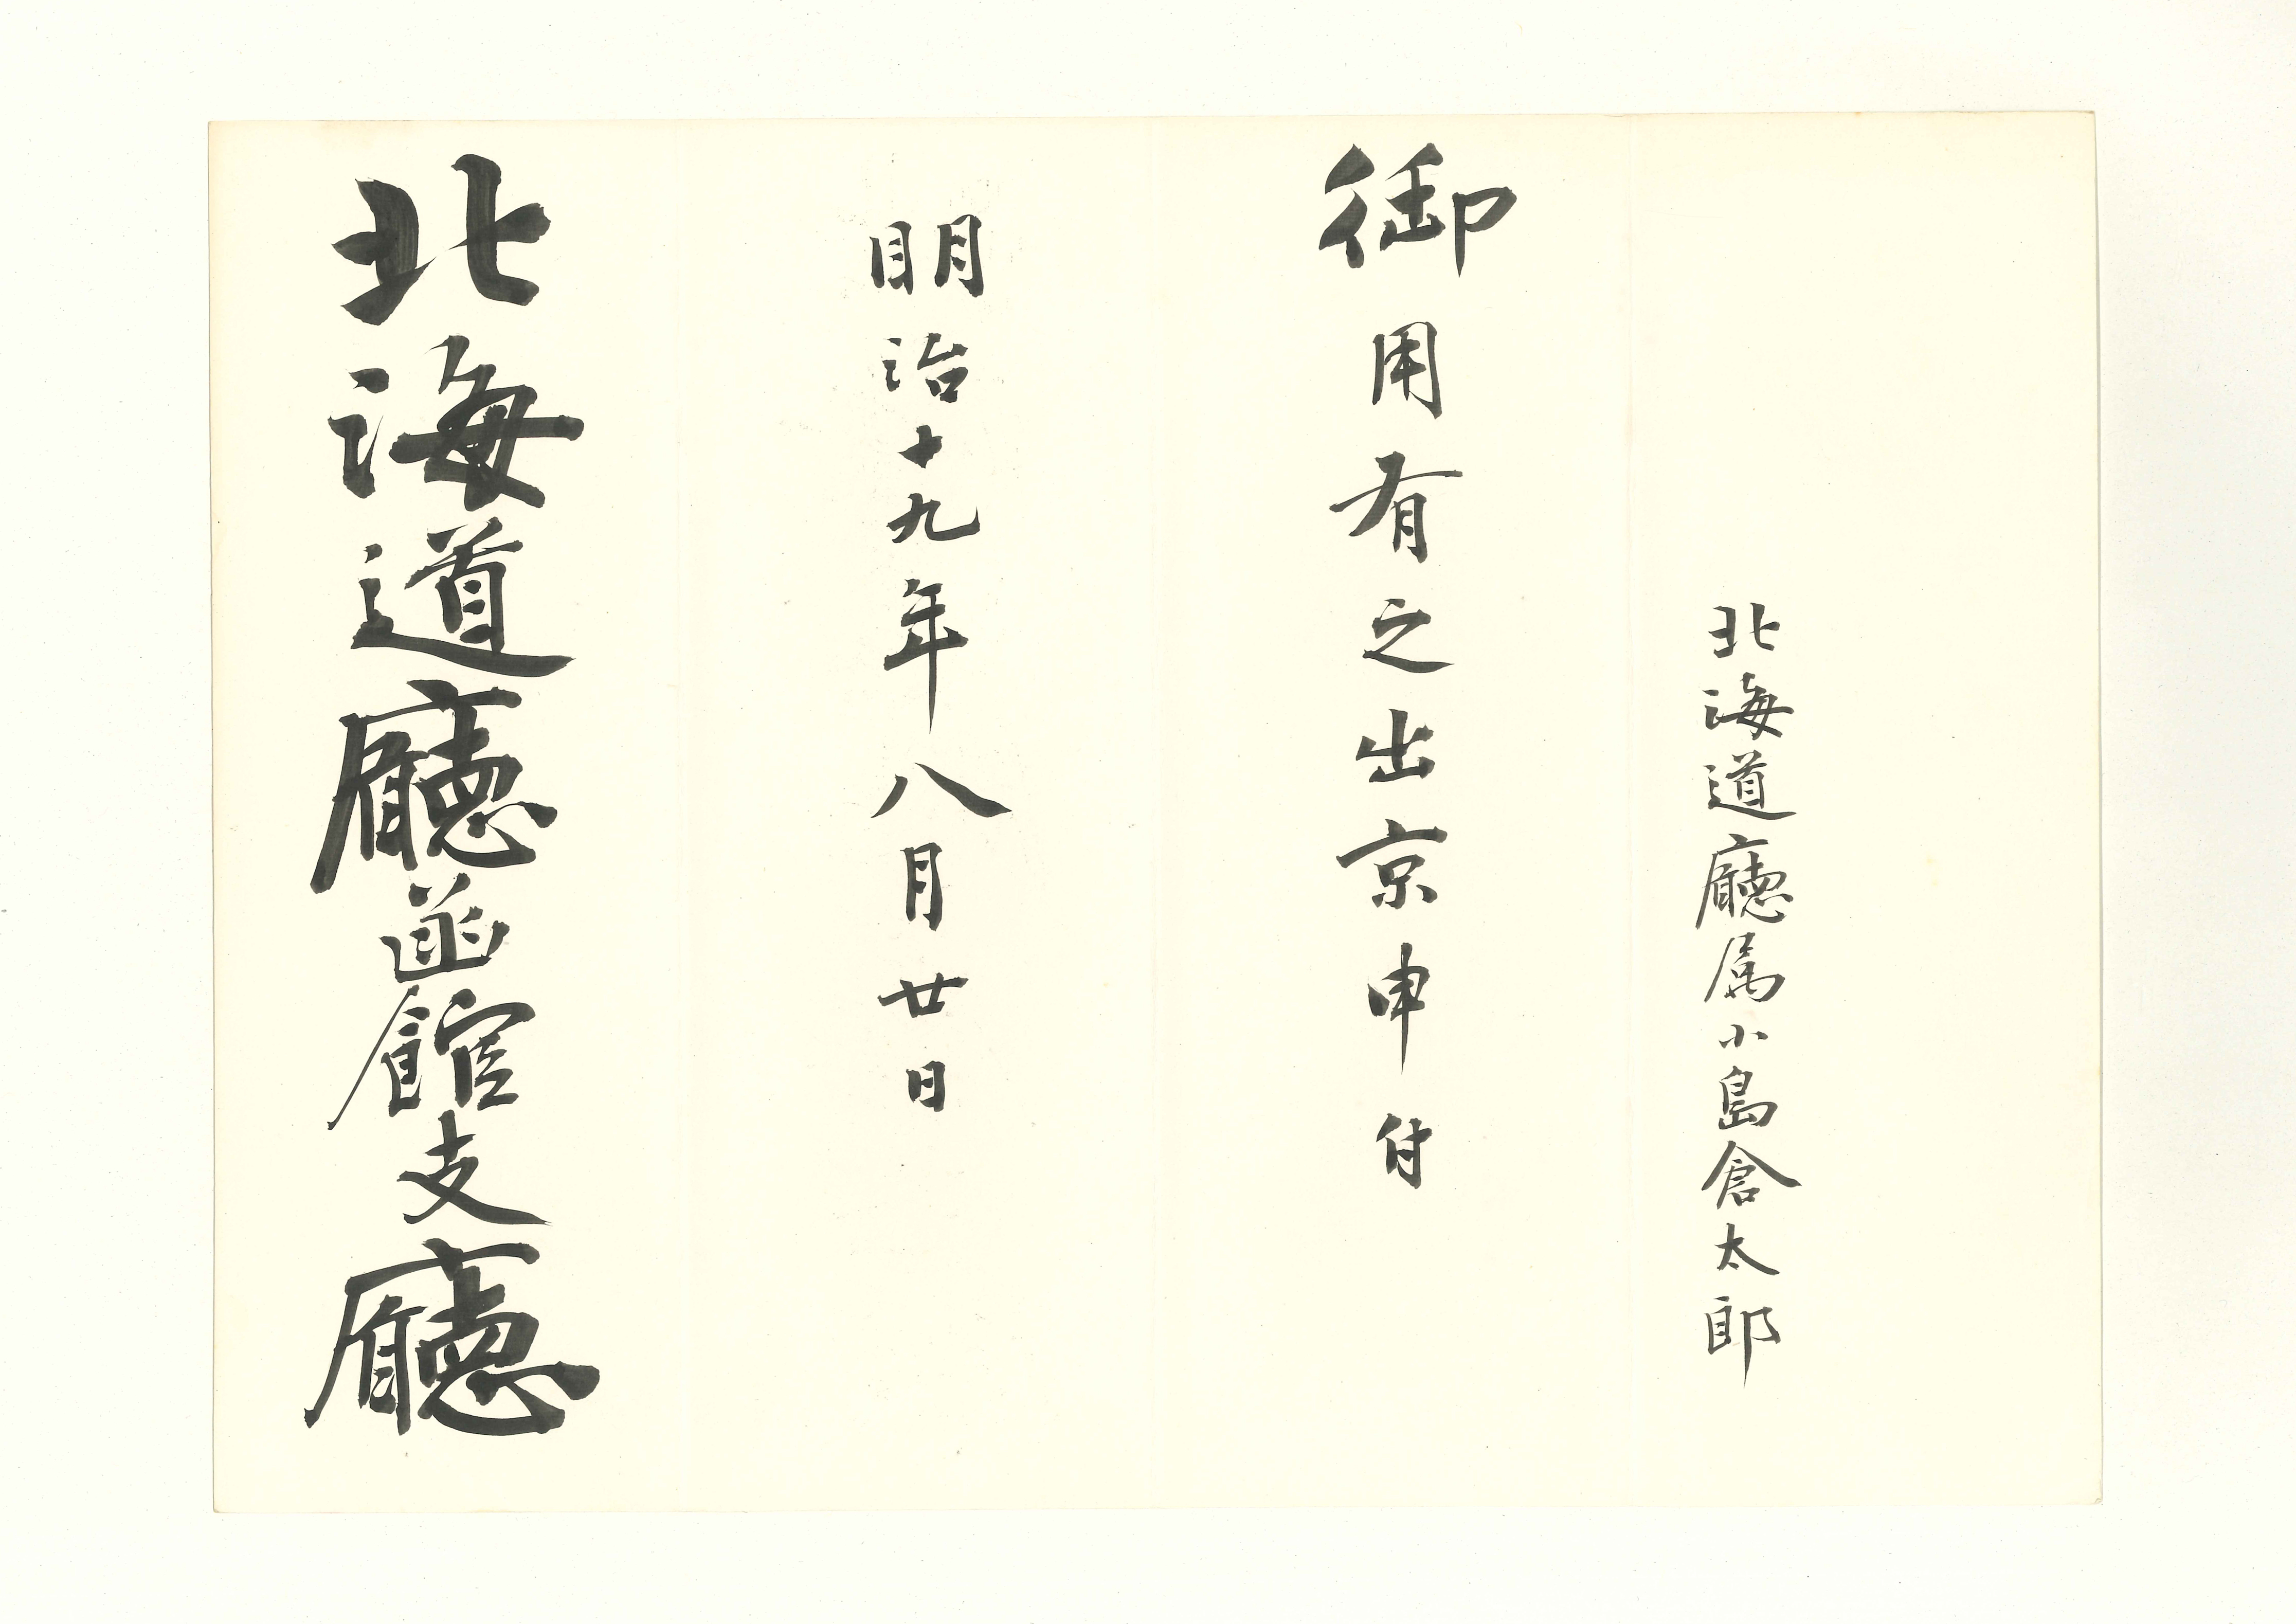 北海道廳属小島倉太郎
御用有之出京申付
明治十九年八月廿日
北海道廳函館支廳